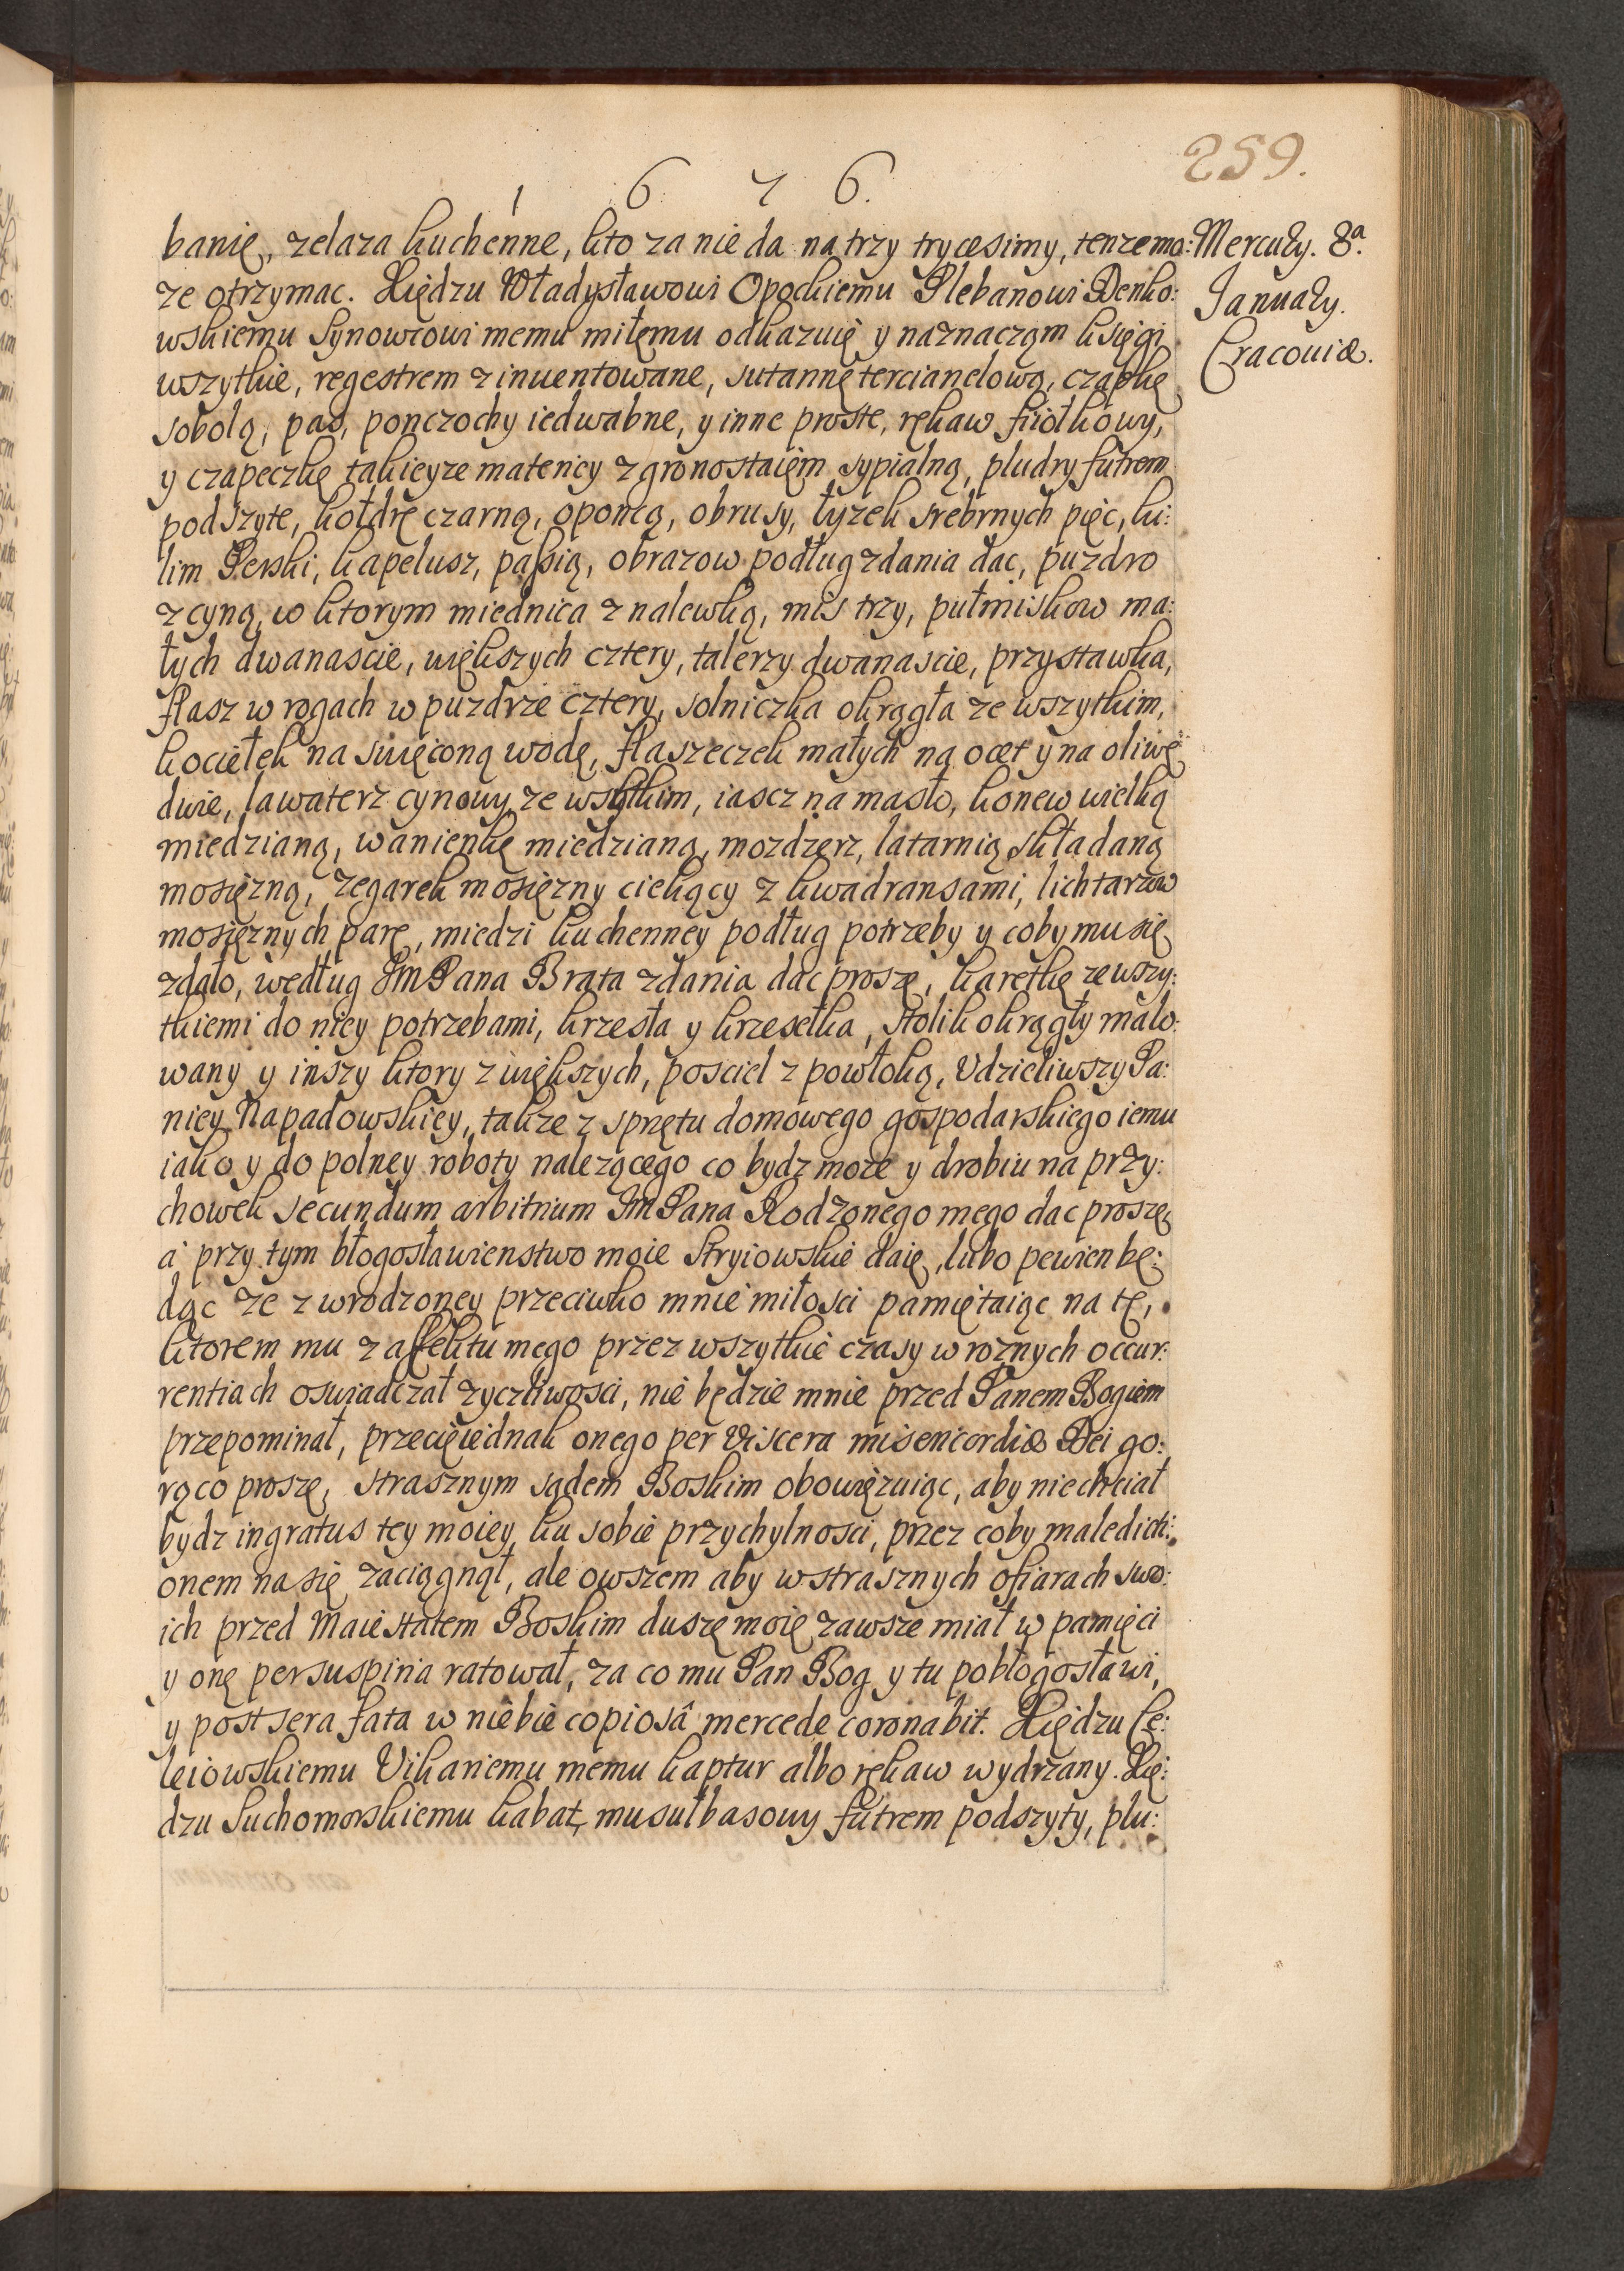 259.
1 6 7 6.
Mercurÿ. 8ª
Januarÿ.
Cracouiæ.
banię, zelaza kuchenne, kto za nie da na trzy trycesimy, tenze mo:
ze otrzymac. Xiędzu Władysławowi Opockiemu Plebanowi Denko:
wskiemu Synowcowi memu miłemu odkazuię y naznaczam księgi
wszytkie, regestrem zinuentowane, sutannę tercianelową, czapkę
sobolą, pas, ponczochy iedwabne, y inne proste, rękaw fiiołkowy,
y czapeczkę takieyze materiey z gronostaiem sypialną, pludry futrem
podszyte, kołdrę czarną, oponcą, obrusy, łyzek srebrnych pięc, ki:
lim Perski, kapelusz, passią, obrazow podług zdania dac, puzdro
z cyną, w ktorym miednica z nalewką, mis trzy, pułmiskow ma:
łych dwanascie, większych cztery, talerzy dwanascie, przystawka,
flasz w rogach w puzdrze cztery, solniczka okrągła ze wszytkim,
kociełek na święconą wodę, flaszeczek małych na ocet y na oliwę
dwie, lawaterz cynowy ze wszytkim, iascz na masło, konew wielką
miedzianą, wanienkę miedzianą, mozdzerz, latarnią składaną
mosięzną, zegarek mosięzny ciekący z kwadransami, lichtarzow
mosięznych parę, miedzi kuchenney podług potrzeby y coby mu się
zdało, według JmPana Brata zdania dac proszę, karetkę ze wszy:
tkiemi do niey potrzebami, krzesła y krzesełka, stolik okrągły malo:
wany y inszy ktory z większych, posciel z powłoką, Vdzieliwszy Pa:
niey Napadowskiey, takze z sprzętu domowego gospodarskiego iemu
iako y do polney roboty nalezącego co bydz moze y drobiu na przy:
chowek secundum arbitrium JmPana Rodzonego mego dac proszę
a przy tym błogosławienstwo moie Stryiowskie daię, lubo pewien bę:
dąc ze z wrodzoney przeciwko mnie miłosci pamiętaiąc na tę,
ktorem mu z affektu mego przez wszytkie czasy w roznych occur:
rentiach oswiadczał zyczliwosci, nie będzie mnie przed Panem Bogiem
przepominał, przecięiednak onego per Viscera misericordiæ Dei go:
rąco proszę, strasznym sądem Boskim obowięzuiąc, aby niechciał
bydz ingratus tey moiey ku sobie przychylnosci, przez coby maledicti:
onem na się zaciągnął, ale owszem aby w strasznych ofiarach swo:
ich przed Maiestatem Boskim duszę moię zawsze miał w pamięci
y onę per suspiria ratował, za co mu Pan Bog y tu pobłogosławi,
y post sera fata w niebie copiosâ mercede coronabit. Xiędzu Ce:
leiowskiemu Vikariemu memu kaptur albo rękaw wydrzany. Xię:
dzu Suchomorskiemu kabat musułbasowy futrem podszyty, plu: